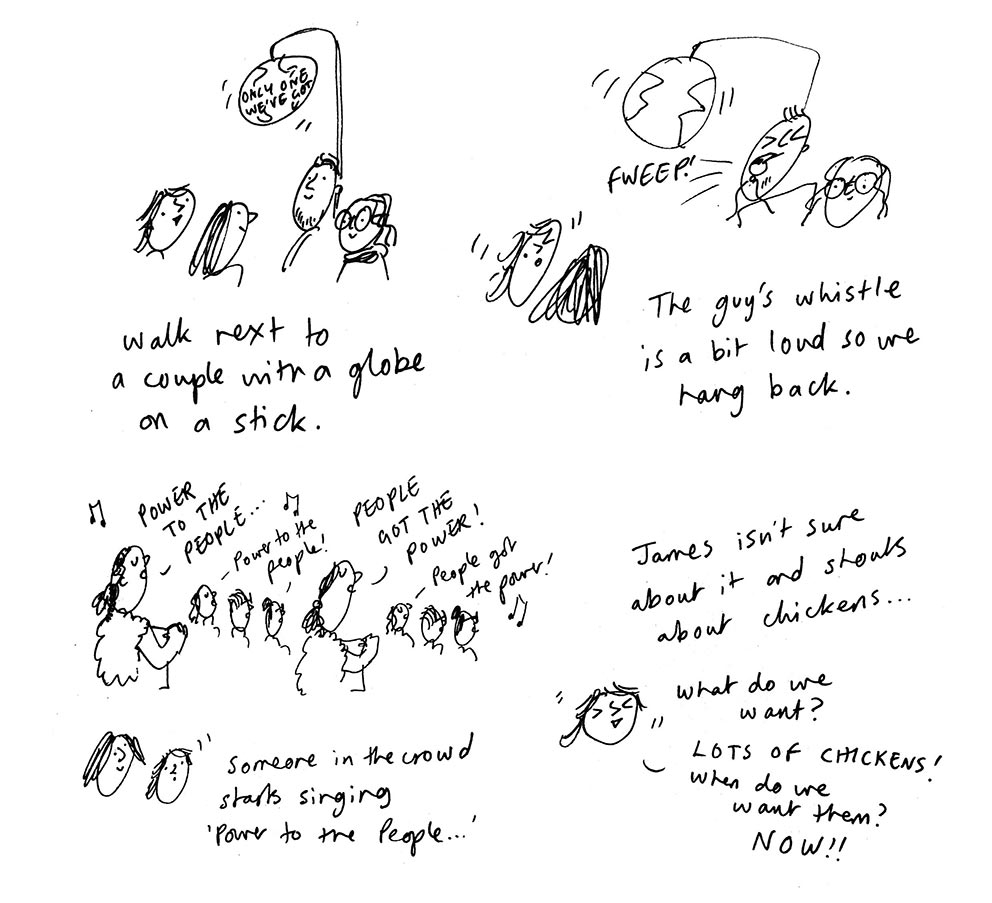 ONLY ONE
WE'VE GOT
walk next to
a couple with a globe
on a stick.
FWEEP!
The guy's whistle
is a bit loud so we
hang back.
POWER
TO THE
PEOPLE...
Power to the
people!
PEOPLE
GOT THE
POWER!
People got
the power!
Someone in the crowd
starts singing
'Power to the People...'
James isn't sure
about it and shouts
about chickens...
what do we
want?
LOTS OF CHICKENS!
when do we
want them?
NOW!!